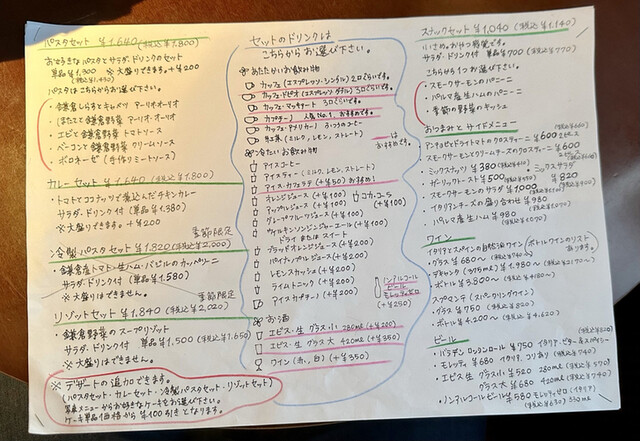 パスタセット ¥1,640 (税込 ¥1,800)
お好きなパスタとサラダ・ドリンクのセット
単品 ¥1,300 ※大盛りできます。+¥200
パスタはこちらからお選び下さい。
・鎌倉しらすとキャベツ アーリオ・オーリオ
・ほたてと鎌倉野菜 アーリオ・オーリオ
・エビと鎌倉野菜 トマトソース
・ベーコンと鎌倉野菜 クリームソース
・ボロネーゼ (手作りミートソース)
カレーセット ¥1,640 (税込 ¥1,800)
・トマトとココナッツで煮込んだチキンカレー
サラダ・ドリンク付 (単品 ¥1,380)
※大盛りできます。+¥200
季節限定
冷製パスタセット ¥1,820 (税込 ¥2,000)
・鎌倉産トマト・生ハム・バジルのカッペリーニ
サラダ・ドリンク付 (単品 ¥1,580)
※大盛りはできません。
季節限定
リゾットセット ¥1,840 (税込 ¥2,020)
・鎌倉野菜のスープリゾット
サラダ・ドリンク付 単品 ¥1,500 (税込 ¥1,650)
※大盛りはできません。
※デザートの追加できます。
(パスタセット・カレーセット・冷製パスタセット・リゾットセット)
写真メニューからお好きなケーキをお選び下さい。
ケーキ単品価格から ¥100引きとなります。
セットのドリンクは
こちらからお選び下さい。
あたたかいお飲み物
カフェ (エスプレッソ・シングル) 2口くらいです。
カフェ・ドピオ (エスプレッソ ダブル) 3口くらいです。
カフェ・マッキャート 3口くらいです。
カプチーノ 人気No.1 おすすめです。
カフェ・アメリカーノ ふつうのコーヒー
紅茶 (ミルク, レモン, ストレート)
はおすすめです。
冷たいお飲み物
アイスコーヒー
アイスティー (ミルク, レモン, ストレート)
アイス・カフェラテ (+¥50) おすすめ!
オレンジジュース (+¥100)
コカ・コーラ (+¥100)
アップルジュース (+¥100)
グレープフルーツジュース (+¥100)
ウィルキンソンジンジャーエール (+¥100)
ドライ または スイート
ブラッドオレンジジュース (+¥200)
パイナップルジュース (+¥200)
レモンスカッシュ (+¥200)
ライムトニック (+¥200)
アイスカプチーノ (+¥200)
ノンアルコールビール
モレッティゼロ
(+¥250)
お酒
エビス・生 グラス・小 280ml (+¥200)
エビス・生 グラス大 420ml (+¥350)
ワイン (赤, 白) (+¥350)
スナックセット ¥1,040 (税込 ¥1,140)
サラダ・ドリンク付 単品 ¥700 (税込 ¥770)
こちらから1つお選び下さい。
・スモークサーモンのパニーニ
・パルマ産生ハムのパニーニ
・季節の野菜のキッシュ
おつまみとサイドメニュー
アンチョビとドライトマトのクロスティーニ ¥600
スモークサーモンとクリームチーズのクロスティーニ ¥600
・ミックスナッツ ¥380
・ミックスサラダ ¥820
・ガーリックトースト ¥500
・スモークサーモンのサラダ ¥1000
・イタリアンチーズの盛り合わせ ¥980
・パルマ産生ハム ¥980
ワイン
イタリアとスペインの自然派ワイン (ボトルワインのリストあります。)
・グラス ¥680~
・デキャンタ (375ml) ¥1,980~
・ボトル ¥3,800~
スプマンテ (スパークリングワイン)
・グラス ¥750
・ボトル ¥4,200~
ビール
・モレッティ ¥680 イタリア, コリあり
・エビス生 グラス小 ¥520 280ml
グラス大 ¥680 420ml
・ノンアルコールビール ¥580 モレッティゼロ (イタリア)
330ml